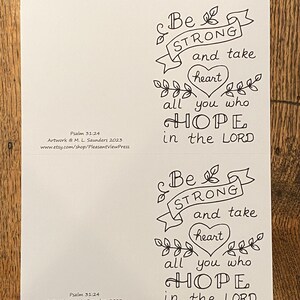 Be
STRONG
and take
heart
all you who
HOPE
in the LORD
Psalm 31:24
Artwork © M. L. Saunders 2023
www.etsy.com/shop/PleasantViewPress
Be
STRONG
and take
heart
all you who
HOPE
in the LORD
Psalm 31:24